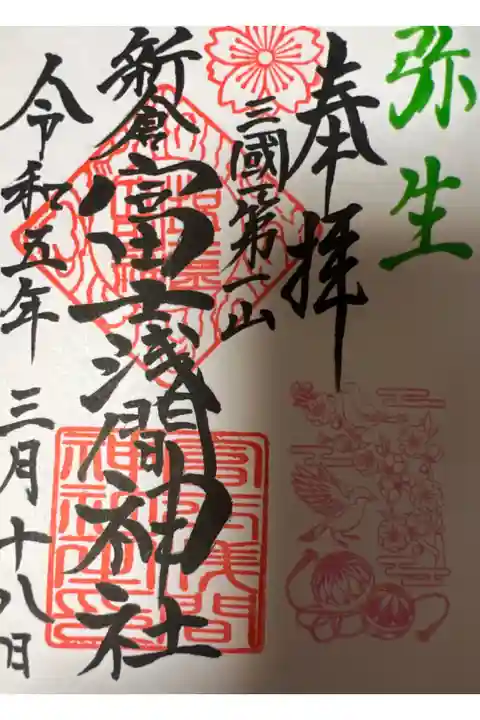 弥生
奉拝
三國第一山
新倉富士浅間神社
令和五年 三月十八日